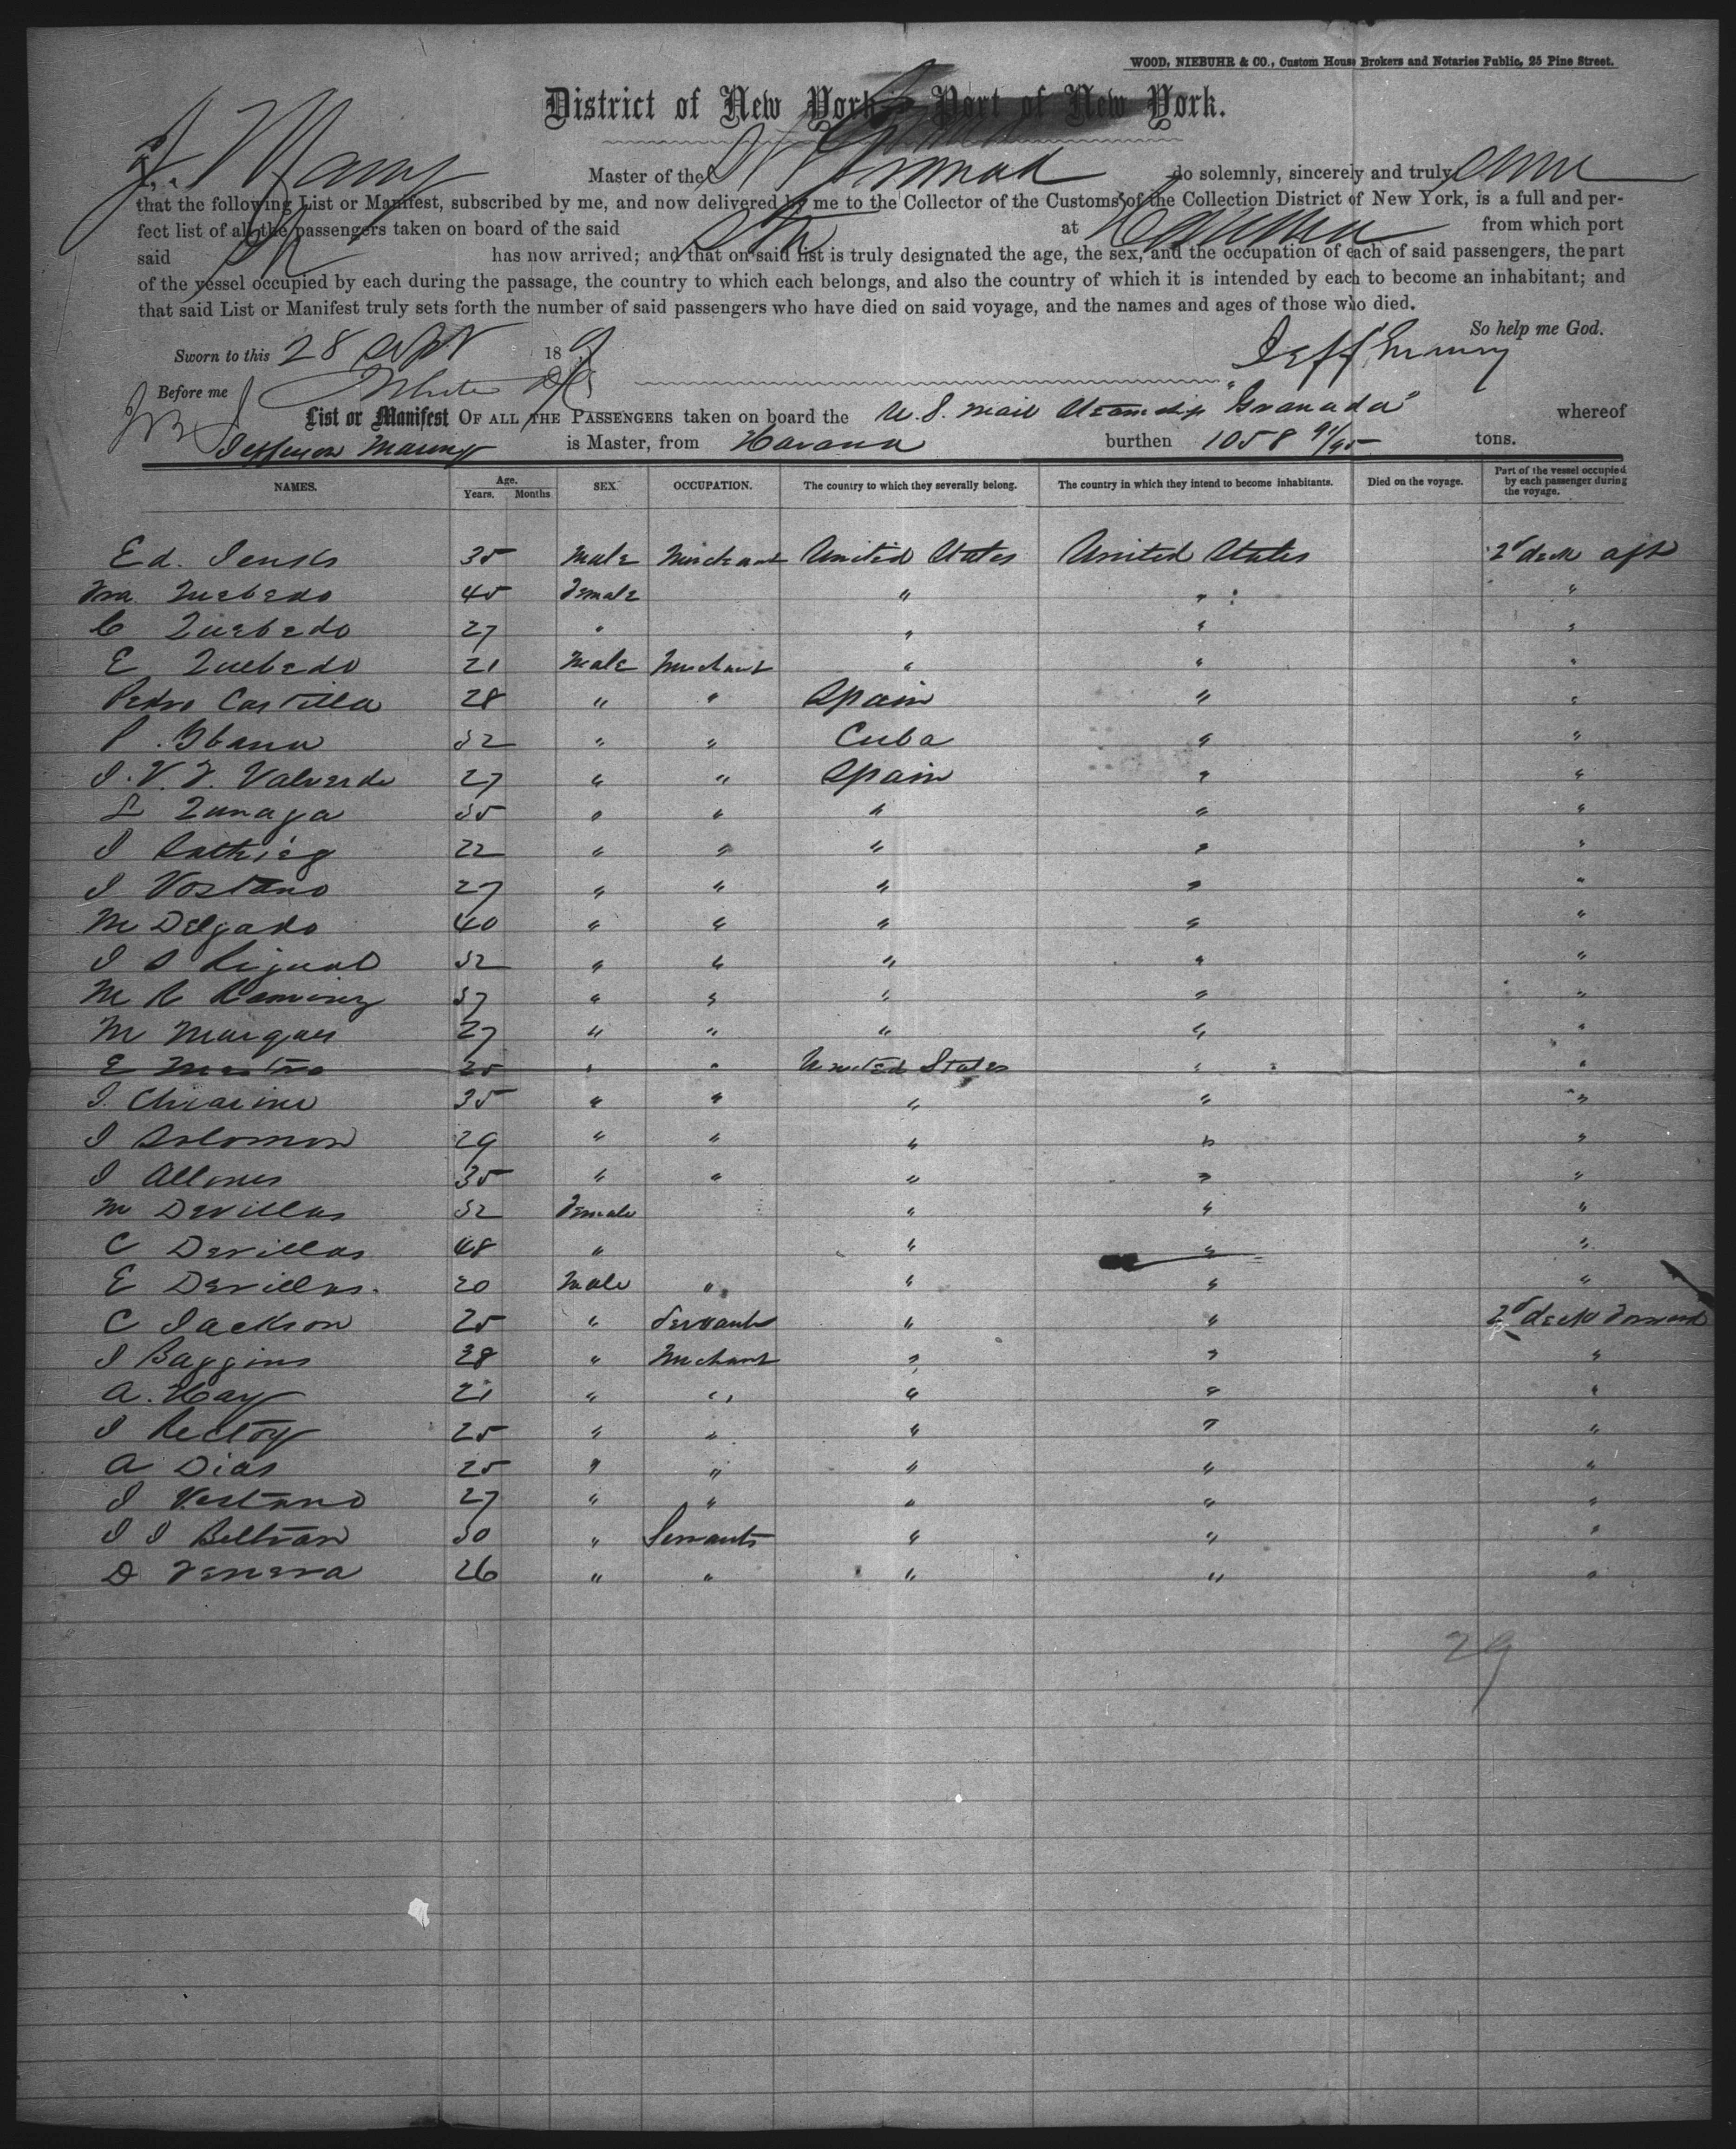 WOOD, NIEBUHR & CO., Custom House Brokers and Notaries Public, 25 Pine Street.
District of New York Port of New York.
Master of the do solemnly, sincerely and truly
that the following List or Manifest, subscribed by me, and now delivered by me to the Collector of the Customs of the Collection District of New York, is a full and per-
fect list of all the passengers taken on board of the said at Havana from which port
said has now arrived; and that on said list is truly designated the age, the sex, and the occupation of each of said passengers, the part
of the vessel occupied by each during the passage, the country to which each belongs, and also the country of which it is intended by each to become an inhabitant; and
that said List or Manifest truly sets forth the number of said passengers who have died on said voyage, and the names and ages of those who died.
So help me God.
Sworn to this 28 189
Before me
List or Manifest OF ALL THE PASSENGERS taken on board the U. S. Mail Steamship "Granada" whereof
Jefferson Maury is Master, from Havana burthen 1058 91/95 tons.
NAMES. Age. Years. Months SEX. OCCUPATION. The country to which they severally belong. The country in which they intend to become inhabitants. Died on the voyage. Part of the vessel occupied by each passenger during the voyage.
Ed. Jenks 35 Male Merchant United States United States 2d deck aft
45 Female " " "
C Quebedo 27 " " " "
E Quebedo 21 Male Merchant " " "
Pedro Castilla 28 " " Spain " "
P. 32 " " Cuba " "
J. V. F. Valverde 27 " " Spain " "
L Zunaga 35 " " " " "
J 22 " " " " "
J Vostano 27 " " " " "
M Delgado 40 " " " " "
J S Rigual 32 " " " " "
M R Ramirez 37 " " " " "
M Marques 27 " " " " "
E 25 " " United States " "
J. Chiarini 35 " " " " "
J Solomon 29 " " " " "
J Allones 35 " " " " "
M Devillas 32 Female " " "
C Devillas 48 " " " "
E Devillas. 20 Male " " " "
C Jackson 25 " Servant " " 2d deck forward
J Baggins 38 " Merchant " " "
A. Hay 21 " " " " "
J Rectoy 25 " " " " "
A Dias 25 " " " " "
J Vestano 27 " " " " "
J J Beltran 30 " Servants " " "
D 26 " " " " "
29